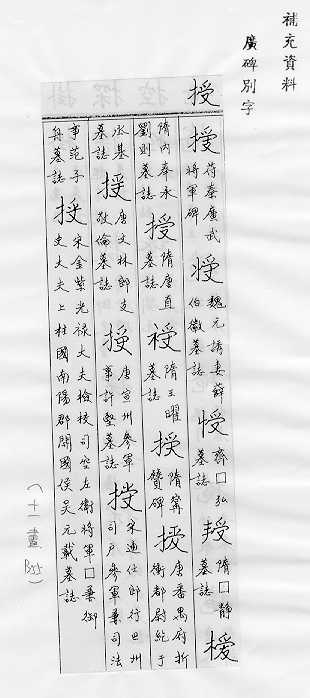 補充資料
廣碑別字
授
授苻秦廣武將軍碑授魏元誘妻薛伯徽墓誌授齊□弘墓誌授隋□靜墓誌授
隋內奉永劉則墓誌授隋唐直墓誌授隋王曜墓誌授隋甯贙碑授唐番禺府折衝都尉紇于
承基墓誌授唐文林郎支敬倫墓誌授唐宣州參軍事許堅墓誌授宋迪仕郎行巴州司戶參軍兼司法
事范子舟墓誌授宋金紫光祿大夫檢校司空左衛將軍□兼御史大夫上柱國南陽郡開國侯吳元載墓誌
(十一畫 B55)